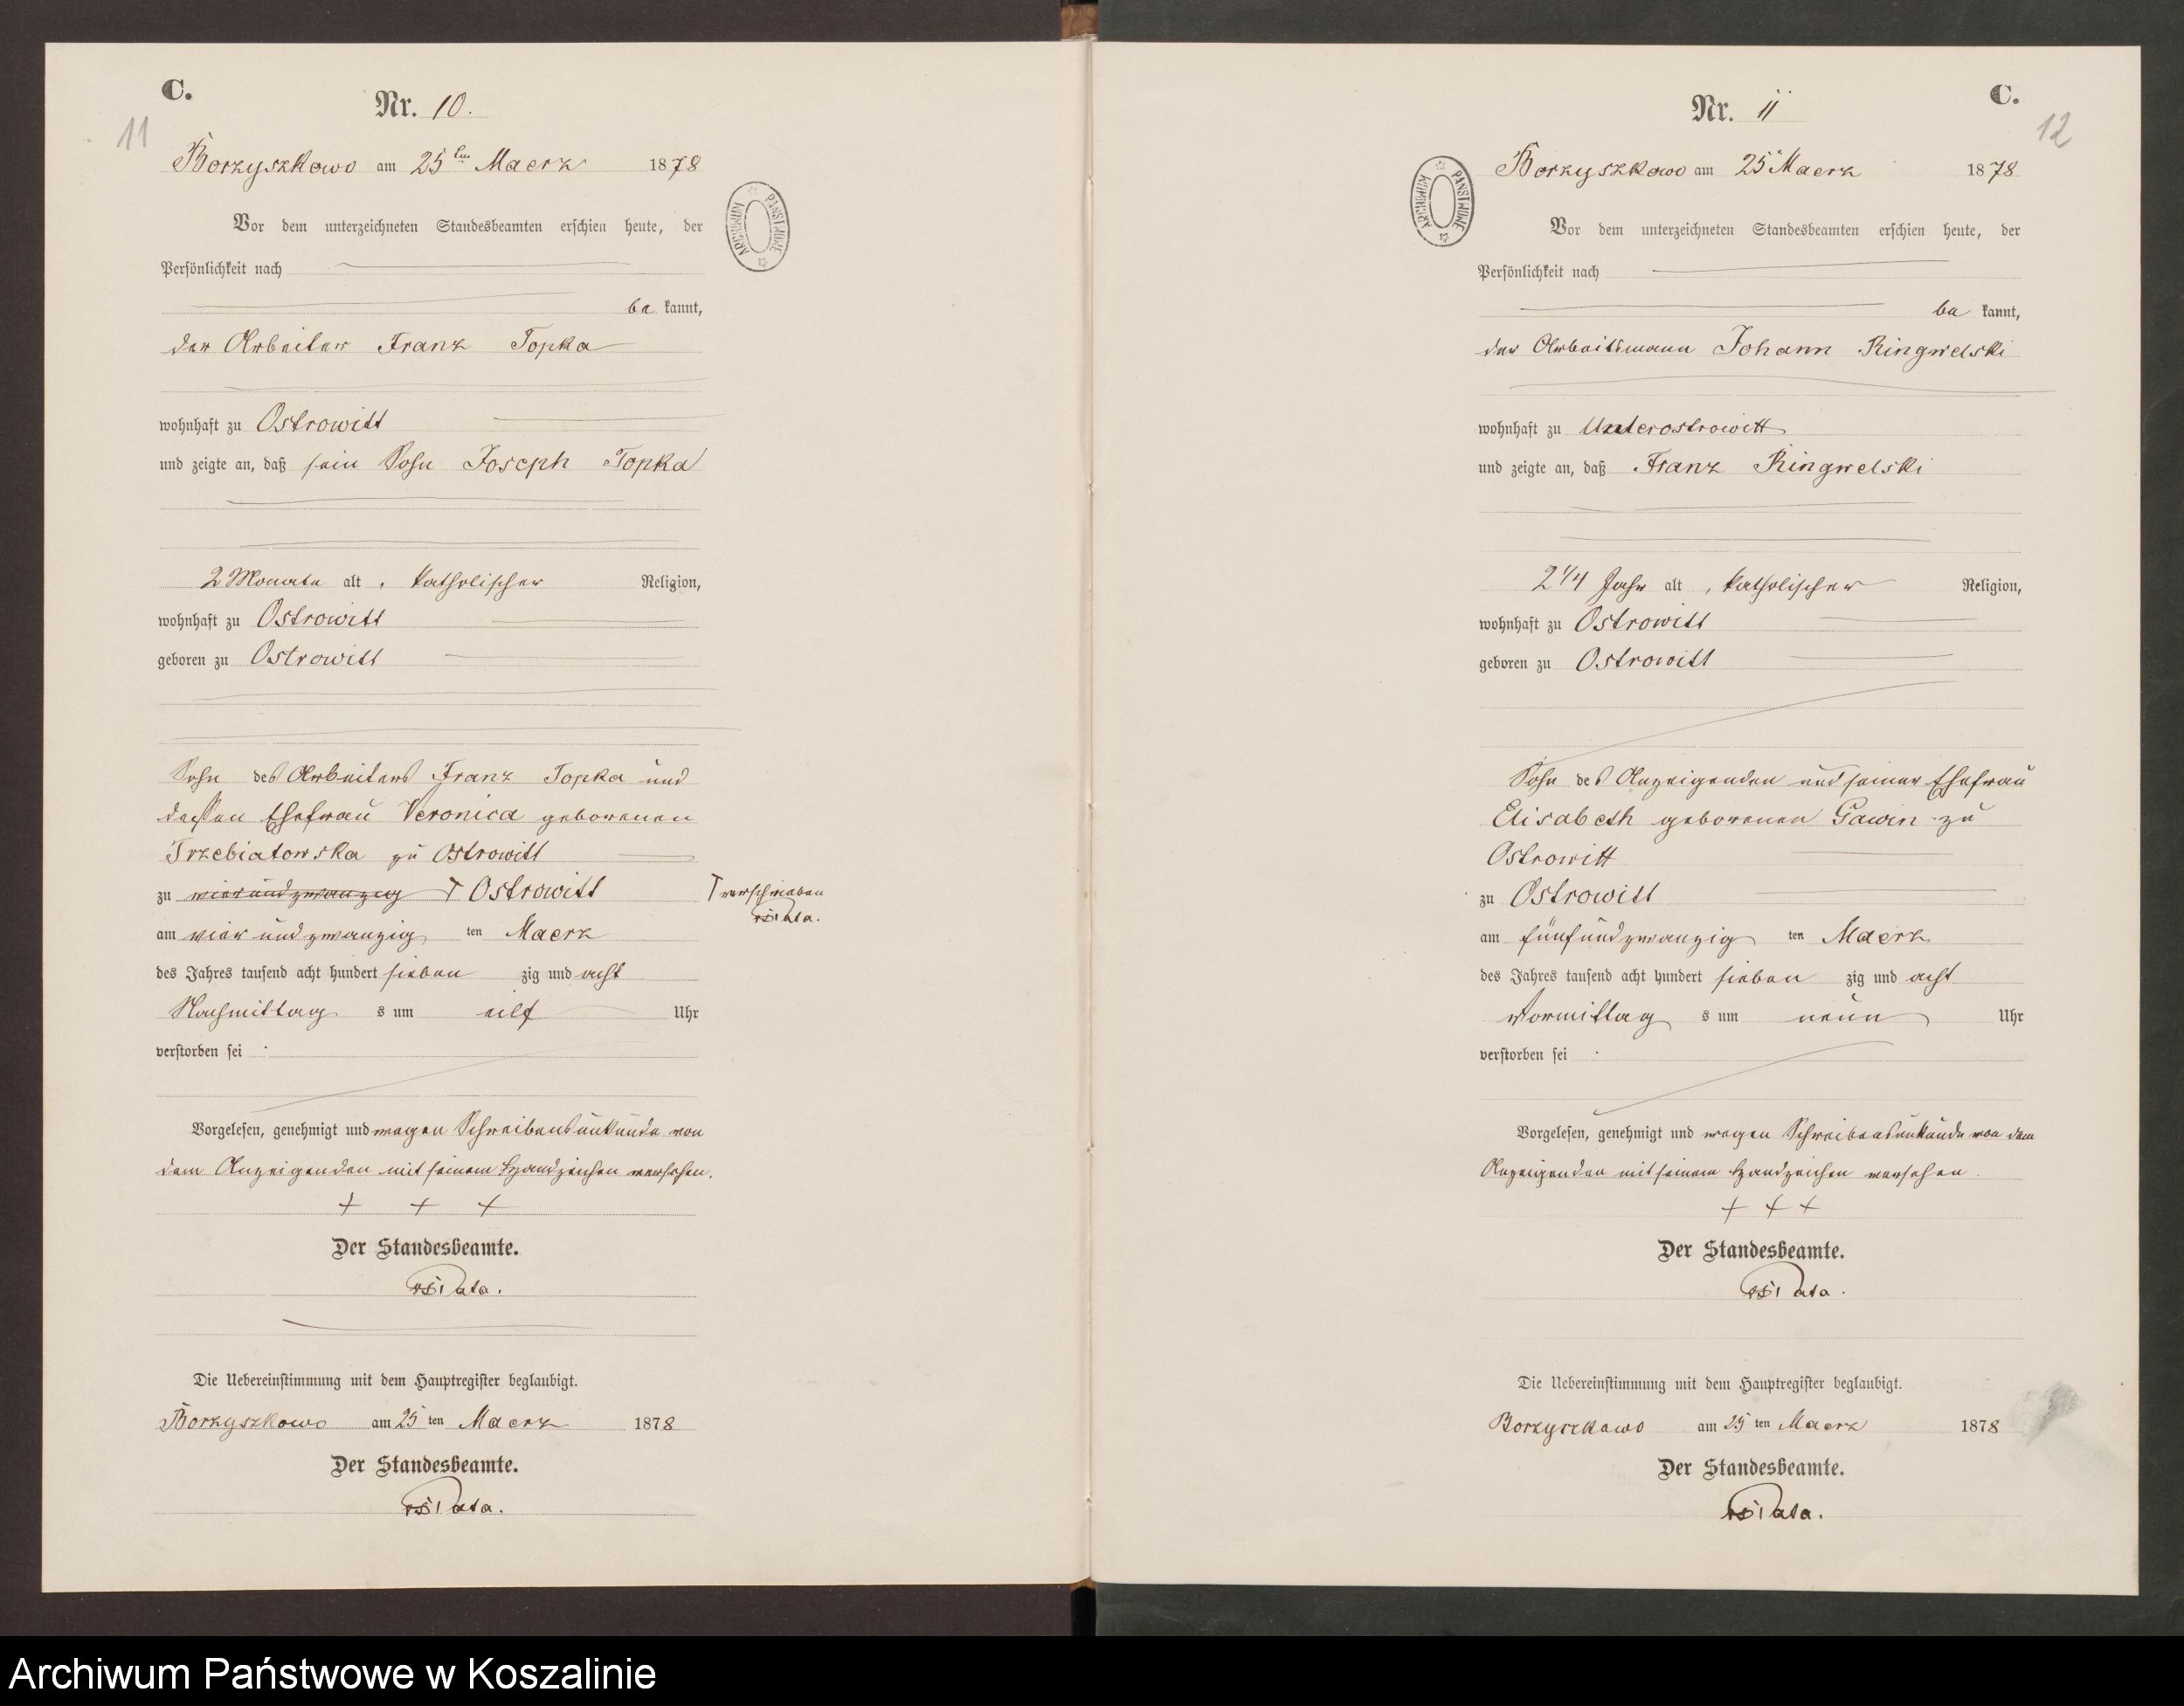 C.
Nr. 10.
11
Borzyszkowo am 25ten Maerz 1878
Vor dem unterzeichneten Standesbeamten erschien heute, der
Persönlichkeit nach
be kannt,
der Arbeiter Franz Topka
wohnhaft zu Ostrowitt
und zeigte an, daß sein Sohn Joseph Topka
2 Monate alt, katholischer Religion,
wohnhaft zu Ostrowitt
geboren zu Ostrowitt
Sohn des Arbeiters Franz Topka und
dessen Ehefrau Veronica geborenen
Trzebiatowska zu Ostrowitt
zu vierundzwanzig ⊤ Ostrowitt
⊤ verschrieben
am vier und zwanzig ten Maerz
des Jahres tausend acht hundert sieben zig und acht
Nachmittag s um eilf Uhr
verstorben sei
Vorgelesen, genehmigt und wegen Schreibensunkunde von
dem Anzeigenden mit seinem Handzeichen versehen.
+ + +
Der Standesbeamte.
Die Uebereinstimmung mit dem Hauptregister beglaubigt.
Borzyszkowo am 25 ten Maerz 1878
Der Standesbeamte.
ARCHIWUM PAŃSTWOWE
C.
Nr. 11
12
Borzyszkowo am 25" Maerz 1878
Vor dem unterzeichneten Standesbeamten erschien heute, der
Persönlichkeit nach
be kannt,
der Arbeitsmann Johann Ringwelski
wohnhaft zu Unterostrowitt
und zeigte an, daß Franz Ringwelski
2 1/4 Jahr alt, katholischer Religion,
wohnhaft zu Ostrowitt
geboren zu Ostrowitt
Sohn des Anzeigenden und seiner Ehefrau
Elisabeth geborenen Gawin zu
Ostrowitt
zu Ostrowitt
am fünfundzwanzig ten Maerz
des Jahres tausend acht hundert sieben zig und acht
Vormittag s um neun Uhr
verstorben sei
Vorgelesen, genehmigt und wegen Schreibensunkunde von dem
Anzeigenden mit seinem Handzeichen versehen.
+ + +
Der Standesbeamte.
Die Uebereinstimmung mit dem Hauptregister beglaubigt.
Borzyszkowo am 25 ten Maerz 1878
Der Standesbeamte.
ARCHIWUM PAŃSTWOWE
Archiwum Państwowe w Koszalinie